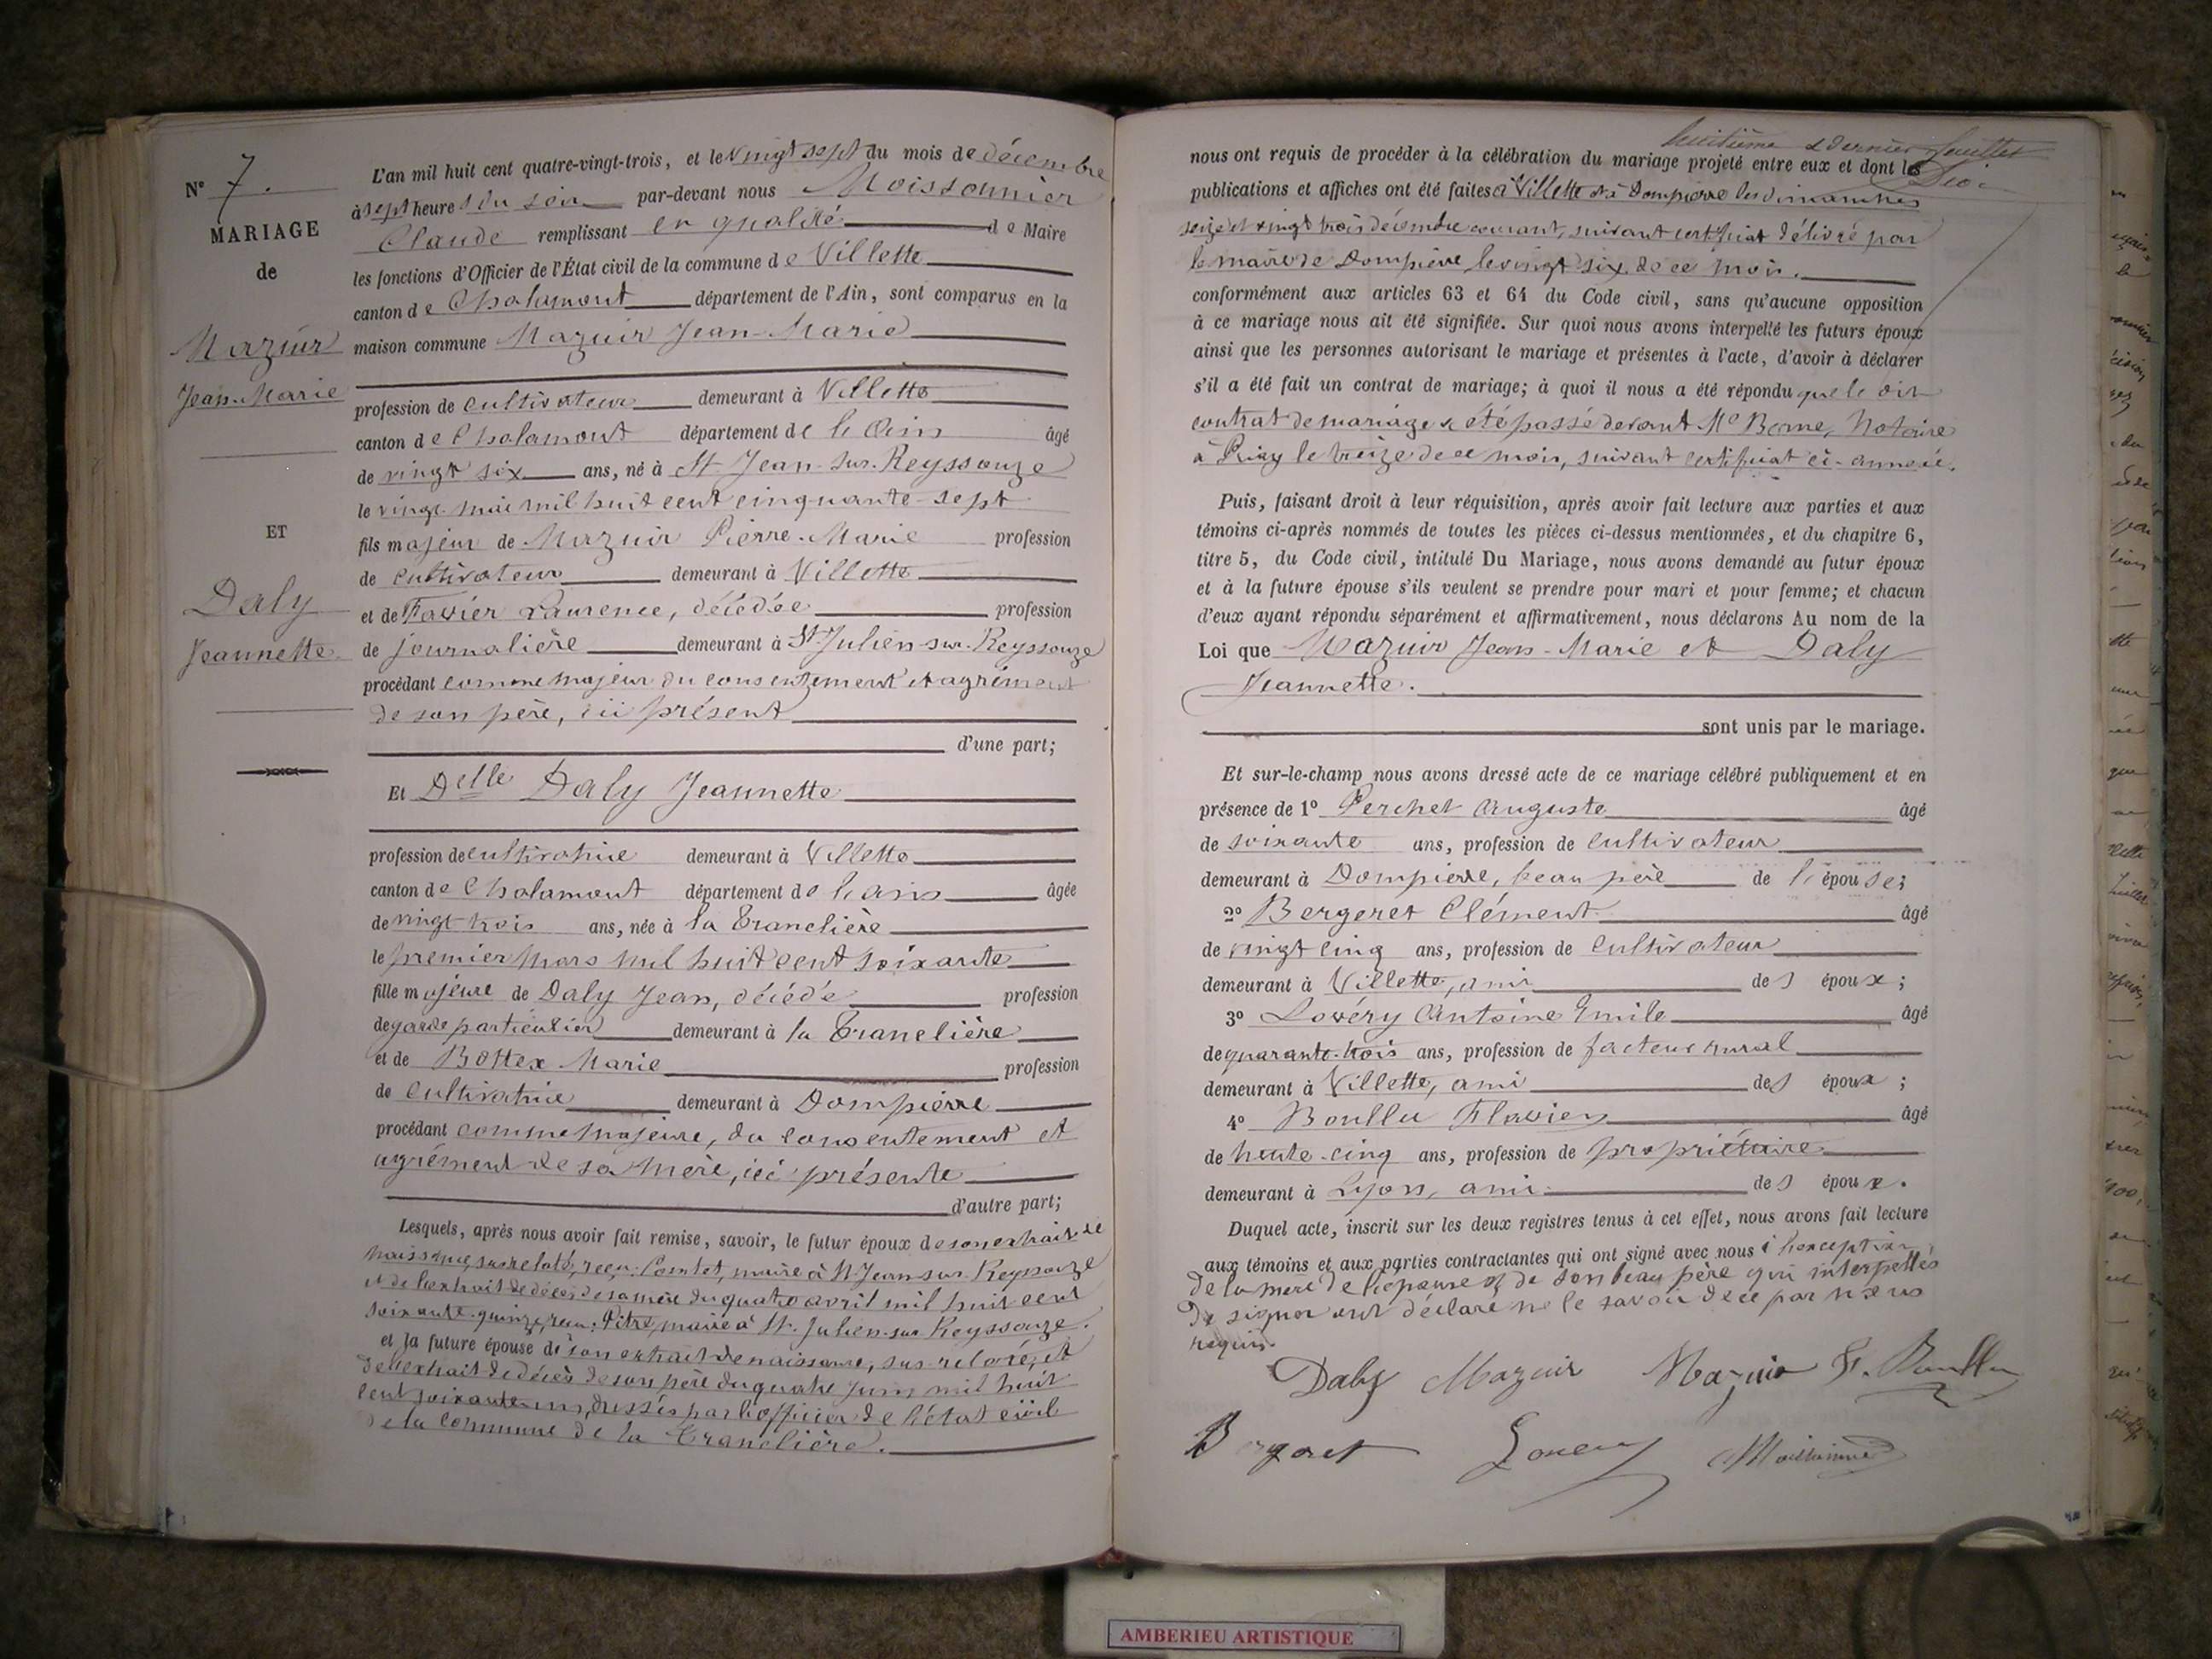 N° 7.
MARIAGE
de
Mazuir
Jean-Marie
ET
Daly
Jeannette
L'an mil huit cent quatre-vingt-trois, et le vingt sept du mois de décembre
à sept heures du soir par-devant nous Moissonnier
Claude remplissant en qualité de Maire
les fonctions d'Officier de l'État civil de la commune de Villette
canton de Chalamont département de l'Ain, sont comparus en la
maison commune Mazuir Jean-Marie
profession de cultivateur demeurant à Villette
canton de Chalamont département de l'Ain âgé
de vingt six ans, né à St Jean-sur-Reyssouze
le vingt mai mil huit cent cinquante-sept
fils majeur de Mazuir Pierre-Marie profession
de cultivateur demeurant à Villette
et de Favier Laurence, décédée profession
de journalière demeurant à St Julien-sur-Reyssouze
procédant comme majeur du consentement et agrément
de son père, ici présent
d'une part;
Et Delle Daly Jeannette
profession de cultivatrice demeurant à Villette
canton de Chalamont département de l'Ain âgée
de vingt trois ans, née à la Tranclière
le premier mars mil huit cent soixante
fille majeure de Daly Jean, décédé profession
de garde particulier demeurant à la Tranclière
et de Bottex Marie profession
de cultivatrice demeurant à Dompierre
procédant comme majeure, du consentement et
agrément de sa mère, ici présente
d'autre part;
Lesquels, après nous avoir fait remise, savoir, le futur époux de son extrait de
naissance, susrelaté, reçu: Comtet, maire à St Jean-sur-Reyssouze
et de l'extrait de décès de sa mère du quatre avril mil huit cent
soixante-quinze, reçu: Pitre, maire à St. Julien-sur Reyssouze.
et la future épouse de son extrait de naissance, sus-relaté, et
de l'extrait de décès de son père du quatre juin mil huit
cent soixante-un, dressés par l'officier de l'état civil
de la commune de la Tranclière.
huitième & dernier feuillet
nous ont requis de procéder à la célébration du mariage projeté entre eux et dont les
publications et affiches ont été faites à Villette et à Dompierre les dimanches
seize et vingt trois décembre courant, suivant certificat délivré par
le maire de Dompierre le vingt six de ce mois.
conformément aux articles 63 et 64 du Code civil, sans qu'aucune opposition
à ce mariage nous ait été signifiée. Sur quoi nous avons interpellé les futurs époux
ainsi que les personnes autorisant le mariage et présentes à l'acte, d'avoir à déclarer
s'il a été fait un contrat de mariage; à quoi il nous a été répondu que le dit
contrat de mariage a été passé devant Me Berne, Notaire
à Priay le treize de ce mois, suivant certificat ci-annexé.
Puis, faisant droit à leur réquisition, après avoir fait lecture aux parties et aux
témoins ci-après nommés de toutes les pièces ci-dessus mentionnées, et du chapitre 6,
titre 5, du Code civil, intitulé Du Mariage, nous avons demandé au futur époux
et à la future épouse s'ils veulent se prendre pour mari et pour femme; et chacun
d'eux ayant répondu séparément et affirmativement, nous déclarons Au nom de la
Loi que Mazuir Jean-Marie et Daly
Jeannette.
sont unis par le mariage.
Et sur-le-champ nous avons dressé acte de ce mariage célébré publiquement et en
présence de 1° Perchet Auguste âgé
de soixante ans, profession de cultivateur
demeurant à Dompierre, beau père de l'épouse;
2° Bergeret Clément âgé
de vingt cinq ans, profession de cultivateur
demeurant à Villette, ami des époux;
3° Lovéry Antoine Emile âgé
de quarante-trois ans, profession de facteur rural
demeurant à Villette, ami des époux;
4° Boullu Flavien âgé
de trente-cinq ans, profession de propriétaire
demeurant à Lyon, ami des époux.
Duquel acte, inscrit sur les deux registres tenus à cet effet, nous avons fait lecture
aux témoins et aux parties contractantes qui ont signé avec nous à l'exception
de la mère de l'épouse et de son beau père qui interpellés
de signer ont déclaré ne le savoir de ce par nous
requis.
Daly Mazuir Mazuir F. Boullu
Bergeret Lovery Moissonnier
AMBERIEU ARTISTIQUE